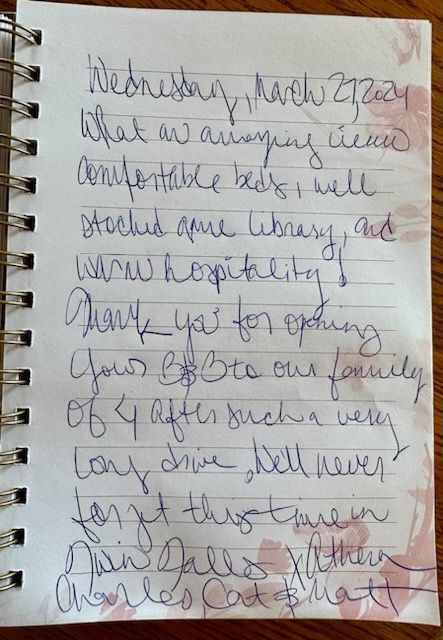 Wednesday, March 27, 2024
What an amazing view
comfortable beds, well
stocked game library, and
warm hospitality!
Thank you for opening
your B&B to our family
of 4 after such a very
long drive. We'll never
forget this time in
Twin Falls Athena
Charles, Cat & Matt